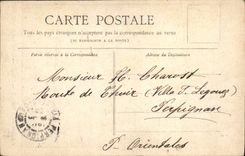 CARTE POSTALE
Tous les pays étrangers n'acceptent pas la correspondance au verso
(SE RENSEIGNER A LA POSTE)
Partie réservée à la Correspondance
Adresse du Destinataire
Monsieur H. Charost
Route de Thuir (Villa F. Legouez)
Perpignan
P. Orientales